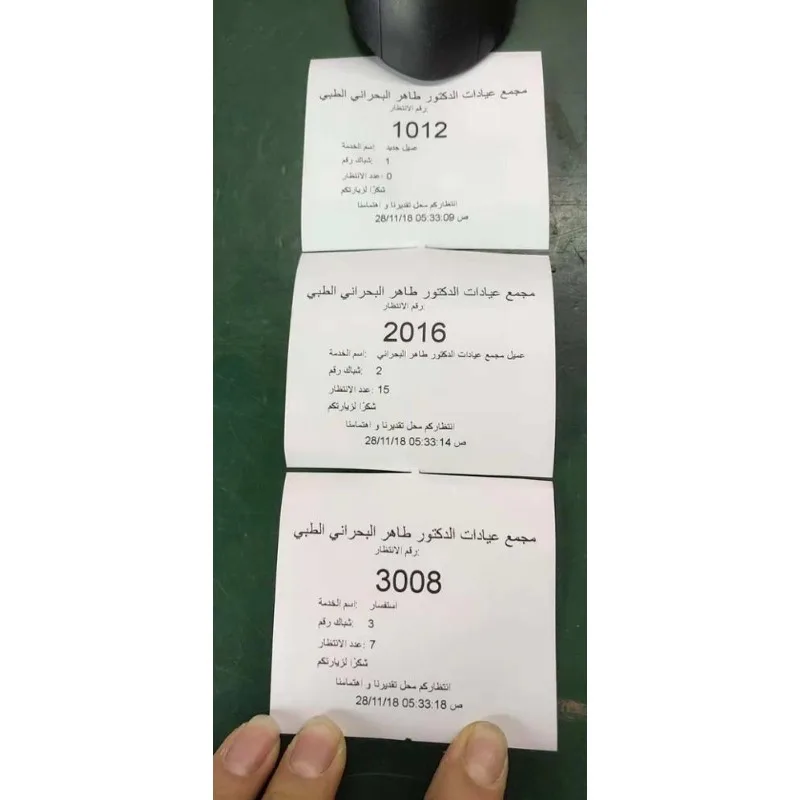 مجمع عيادات الدكتور طاهر البحراني الطبي
رقم الانتظار:
1012
اسم الخدمة: عميل جديد
شباك رقم: 1
عدد الانتظار: 0
شكرًا لزيارتكم
انتظاركم محل تقديرنا و اهتماسنا
28/11/18 05:33:09 ص
مجمع عيادات الدكتور طاهر البحراني الطبي
رقم الانتظار:
2016
اسم الخدمة: عميل مجمع عيادات الدكتور طاهر البحراني
شباك رقم: 2
عدد الانتظار: 15
شكرًا لزيارتكم
انتظاركم محل تقديرنا و اهتماسنا
28/11/18 05:33:14 ص
مجمع عيادات الدكتور طاهر البحراني الطبي
رقم الانتظار:
3008
اسم الخدمة: استفسار
شباك رقم: 3
عدد الانتظار: 7
شكرًا لزيارتكم
انتظاركم محل تقديرنا و اهتماسنا
28/11/18 05:33:18 ص